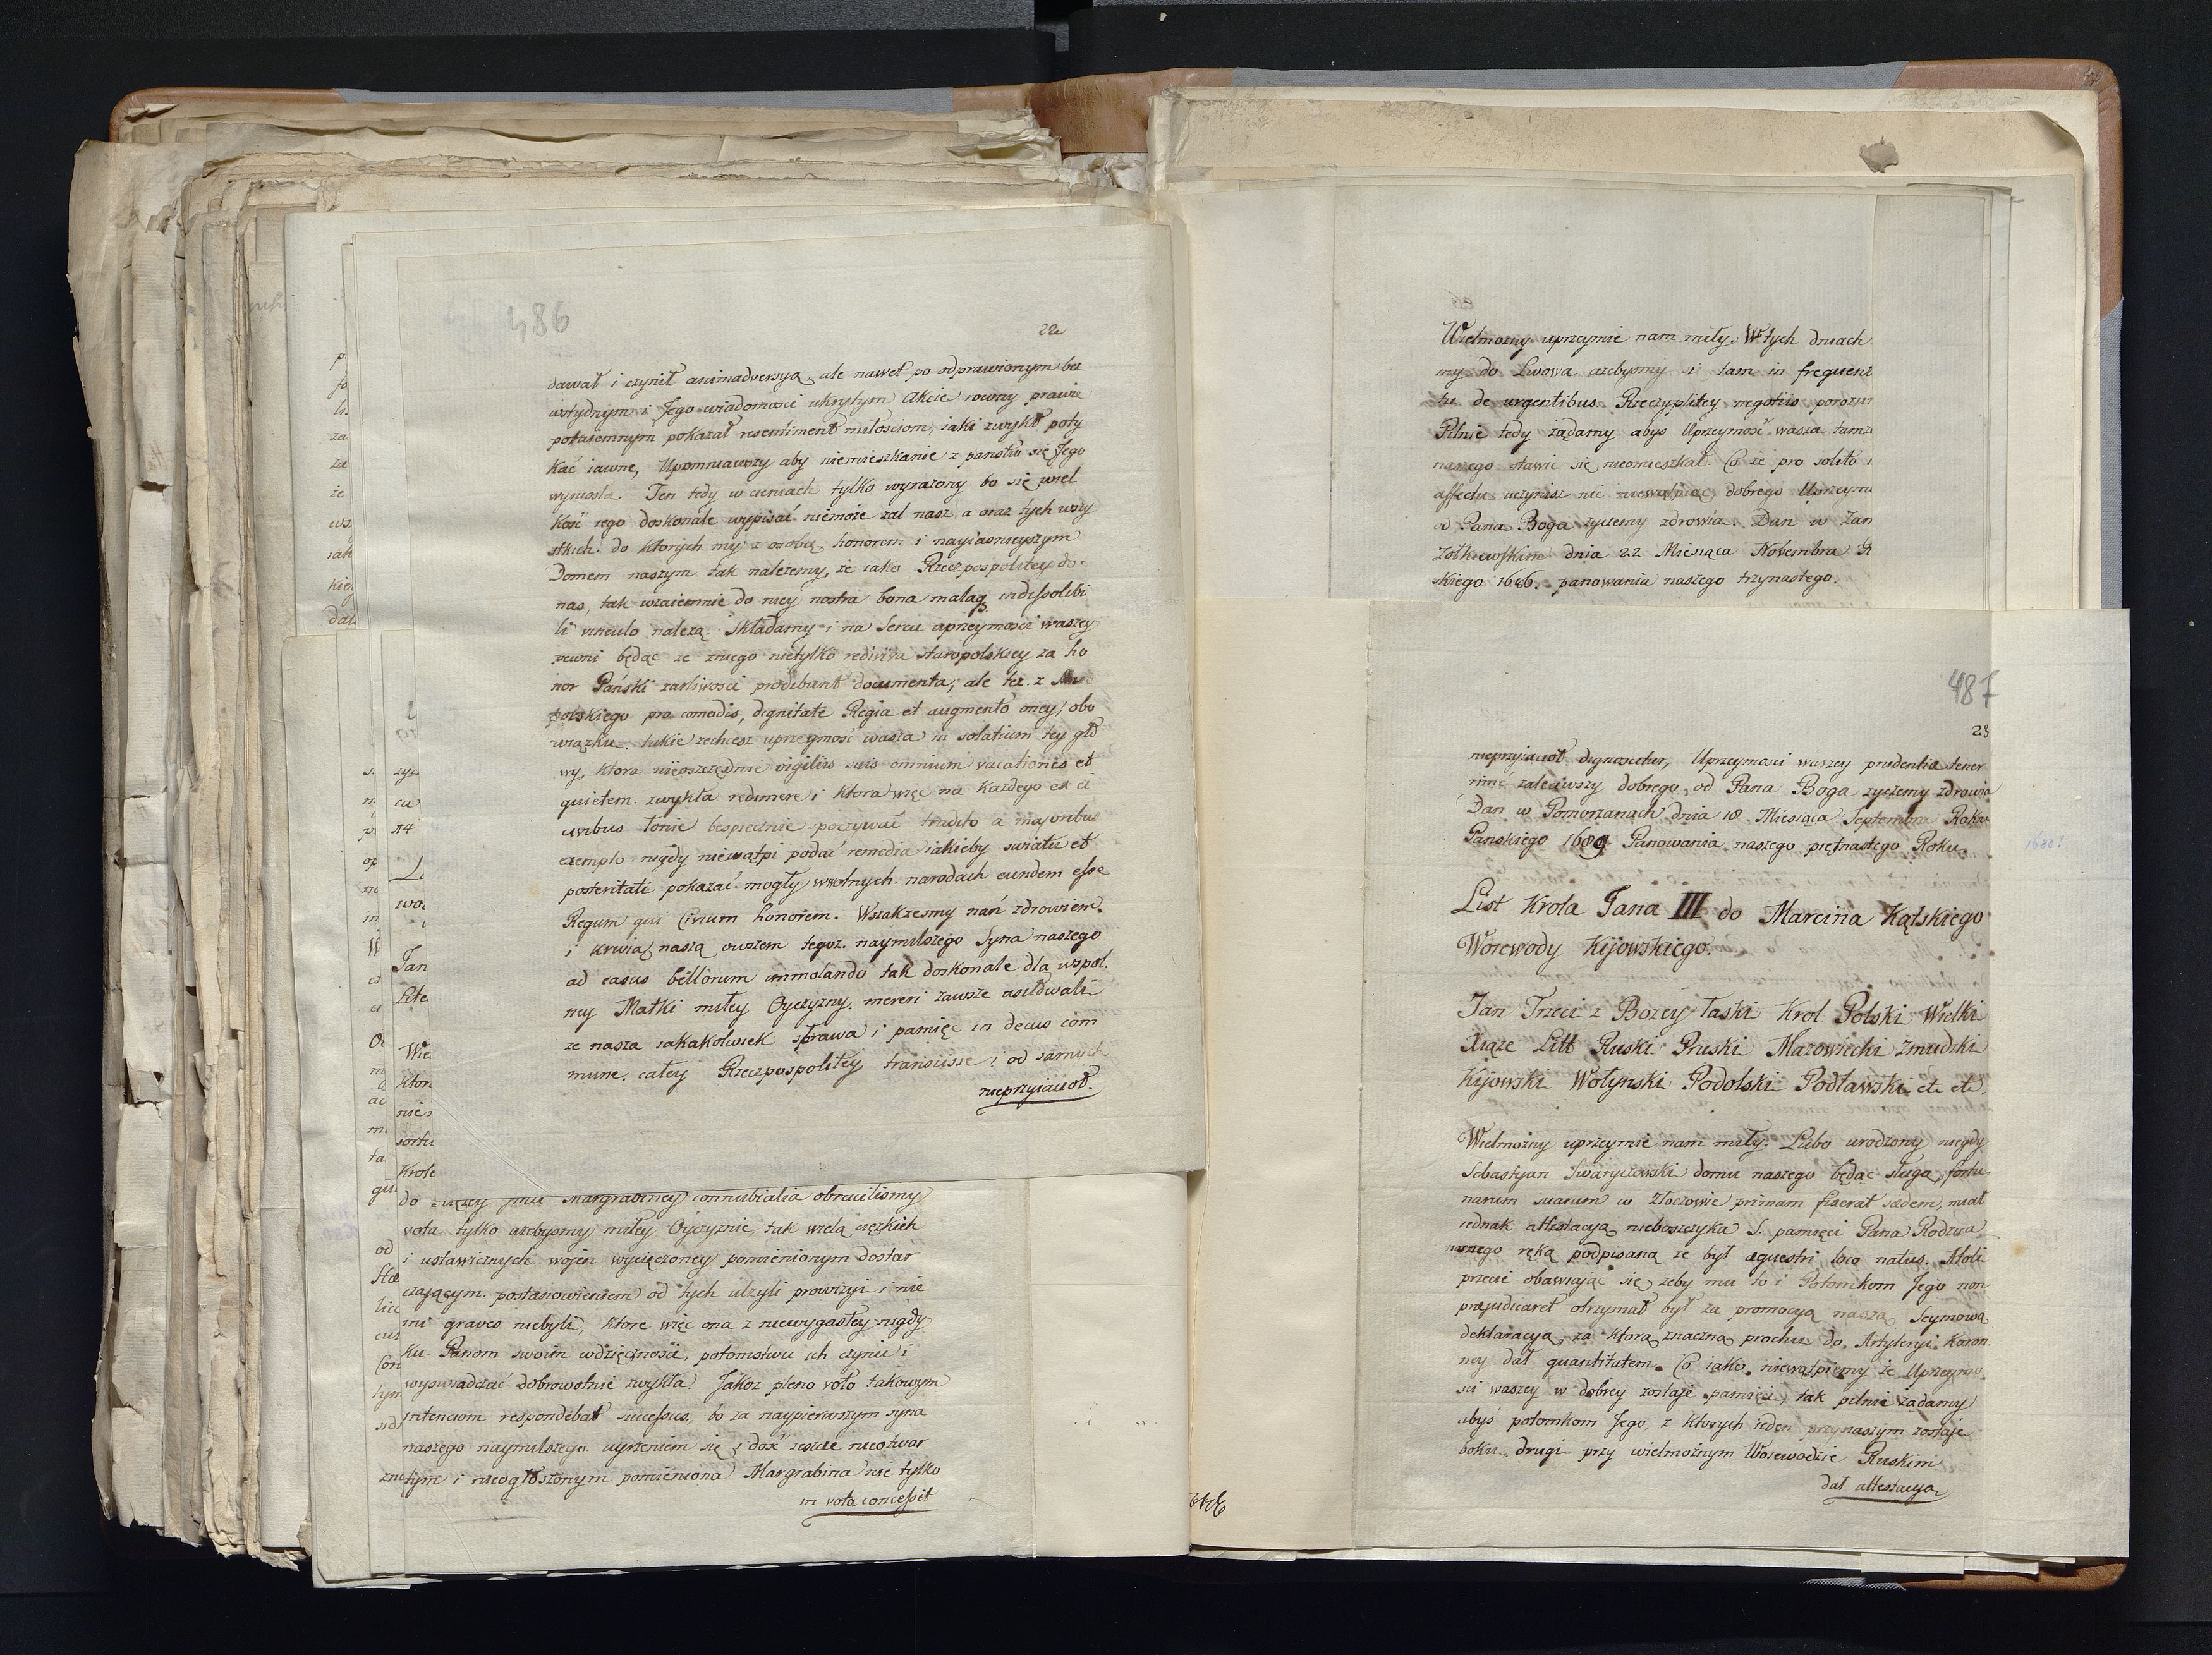 486
22
dawał i czynił animadversyą, ale nawet po odprawionym bez
wstydnym i Jego wiadomosci ukrytym Akcie rowny prawie
potaiemnym pokazał resentiment miłosciom, iaki zwykł poty
kać iawne, Upomniawszy aby niemieszkanie z państw się Jego
wyniosła. Ten tedy w cieniach tylko wyrażony bo się wiel
kość iego doskonale wypisać niemoże żal nasz, a oraz tych wszy
stkich do ktorych my z osobą, honorem i nayiasnieyszym
Domem naszym tak należemy, że iako Rzeczpospolitey do
nas, tak wzaiemnie do niey nostra bona malaq indissolubi
li vinculo należą. Składamy i na Sercu uprzeymości waszey
pewni będąc że z niego nietylko rediviva staropolskiey za ho
nor Pański żarliwosci prodibunt documenta; ale też z
polskiego pro comodis, dignitate Regia et augmento oney, obo
wiązku takie zechcesz uprzeymość wasza in solatium tey gło
wy, ktora nieoszczędnie vigiliis suis omnium vacationes et
quietem zwykła redimere i ktora więc na każdego ex ci
vibus łonie bespiecznie poczywać tradito a majoribus
exemplo nigdy niewątpi podać remedia iakieby swiatu et
posteritati pokazać mogły wwolnych narodach eundem esse
Regum qui Civium honorem. Wszakżesmy nań zdrowiem
i krwią naszą owszem tegoż naymilszego Syna naszego
ad casus bellorum immolando tak doskonale dla wspol
ney Matki miłey Oyczyzny mereri zawsze usiłowali
że nasza iakakolwiek sprawa i pamięć in decus com
mune całey Rzeczpospolitey transiisse i od samych
nieprzyiacioł.
do Xiężny Jmci Margrabiney connubialia obrucilismy
vota tylko ażebysmy miłey Oyczyznie, tak wielą ciężkich
i ustawicznych wojen wycięczoney pomienionym dostar
czającym postanowieniem od tych ulżyli prowizyi i nie
mi graves niebyli, ktore więc ona z niewygasłey nigdy
ku Panom swoim wdzięczności, potomstwu ich czynić i
wyswiadczać dobrowolnie zwykła. Jakoż pleno voto takowym
intenciom respondebat successus, bo za naypierwszym syna
naszego naymilszego uyrzeniem się dość ieszcze nieotwar
tym i nieogłoszonym pomieniona Margrabina nie tylko
in vota concessit
Wielmożny uprzeymie nam miły. W tych dniach
my do Lwowa ażebysmy i tam in frequent
tu de urgentibus Rzeczyplitey negotiis porozum
Pilnie tedy żądamy abys Uprzeymość wasza tamż
naszego stawić się nieomieszkał. Co że pro solito
affectu uczynisz nic niewątpiąc dobrego Uprzeym
od Pana Boga życzemy zdrowia. Dan w Zam
Zołkiewskim dnia 22 Miesiąca Novembra R
skiego 1686. panowania naszego trzynastego.
487
23
nieprzyiacioł dignoscetur, Uprzeymosci waszey prudentia tener
rime zaleciwszy dobrego od Pana Boga życzemy zdrowia
Dan w Pomorzanach dnia 18 Miesiąca Septembra Roku
Panskiego 1689 Panowania naszego piętnastego Roku.
1688!
List Krola Jana III do Marcina Kątskiego
Woiewody Kijowskiego.
Jan Trzeci z Bożey łaski Krol Polski Wielki
Xiąże Litt Ruski Pruski Mazowiecki Zmudzki
Kijowski Wołynski Podolski Podlawski etc etc.
Wielmożny uprzeymie nam miły. Lubo urodzony niegdy
Sebastyan Swaryczewski domu naszego będąc sługą, fortu
narum suarum w Złoczowie primam fixerat sedem, miał
iednak attestacyą nieboszczyka S. pamięci Pana Rodzica
naszego ręką podpisaną że był aequestri loco natus. Atoli
przecie obawiając się żeby mu to i Potomkom Jego non
prejudicaret otrzymał był za promocyą naszą Seymową
deklaracyą, za ktorą znaczną prochu do Artyleryi Koron
ney dał quantitatem. Co iako niewątpiemy że Uprzeymo
sci waszey w dobrey zostaje pamięci, tak pilnie żądamy
abys potomkom Jego, z ktorych ieden przy naszym zostaje
boku drugi przy wielmożnym Woiewodzie Ruskim
dał attestacyą